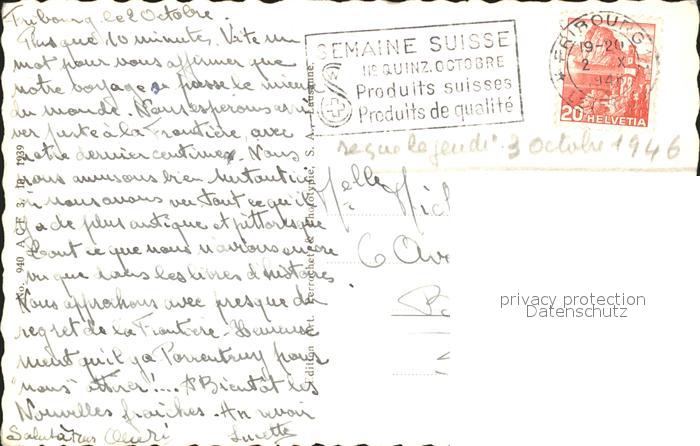 Fribourg le 2 Octobre.
Plus que 10 minutes. Vite un
mot pour vous affirmer que
notre voyage se passe le mieux
du monde. Nous esperons arri-
ver juste à la Frontière, avec
notre dernier centime. Nous
nous amusons bien
nous avons vu tout ce qu'il
y a de plus antique et pittoresque
tout ce que nous n'avions encore
vu que dans les livres d'histoires
Nous approchons avec presque du
regret de la Frontière. Heureuse
ment qu'il y a Porrentruy pour
"nous" attirer!... A Bientôt les
Nouvelles fraîches. Au revoir
Salut à tous Henri Lucette
No. 940 ACE 3. 10. 1939
Edition Art. Perrochet & Phototypie, S. A., Lausanne.
SEMAINE SUISSE
IIe QUINZ. OCTOBRE
Produits suisses
Produits de qualité
FRIBOURG 1
19-20
2 X
194
20 HELVETIA
reçue le jeudi 3 octobre 1946
Melle Mich
6 Ave
privacy protection
Datenschutz